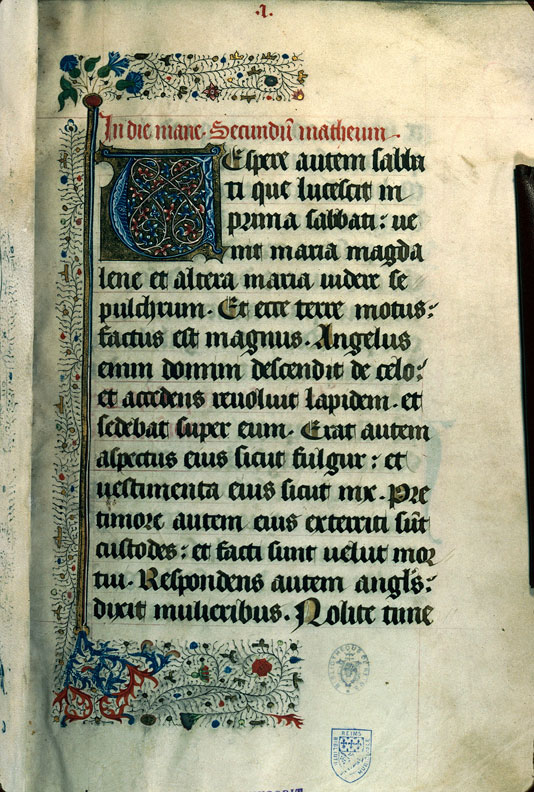 .1.
In die mane. Secundū matheum.
Vespere autem sabba
ti que lucescit in
prima sabbati: ue
nit maria magda
lene et altera maria uidere se
pulchrum. Et ecce terre motus:
factus est magnus. Angelus
enim domini descendit de celo:
et accedens reuoluit lapidem. et
sedebat super eum. Erat autem
aspectus eius sicut fulgur: et
uestimenta eius sicut nix. Pre
timore autem eius exterriti sūt
custodes: et facti sunt uelut mor
tui. Respondens autem angls:
dixit mulieribus. Nolite time
REIMS